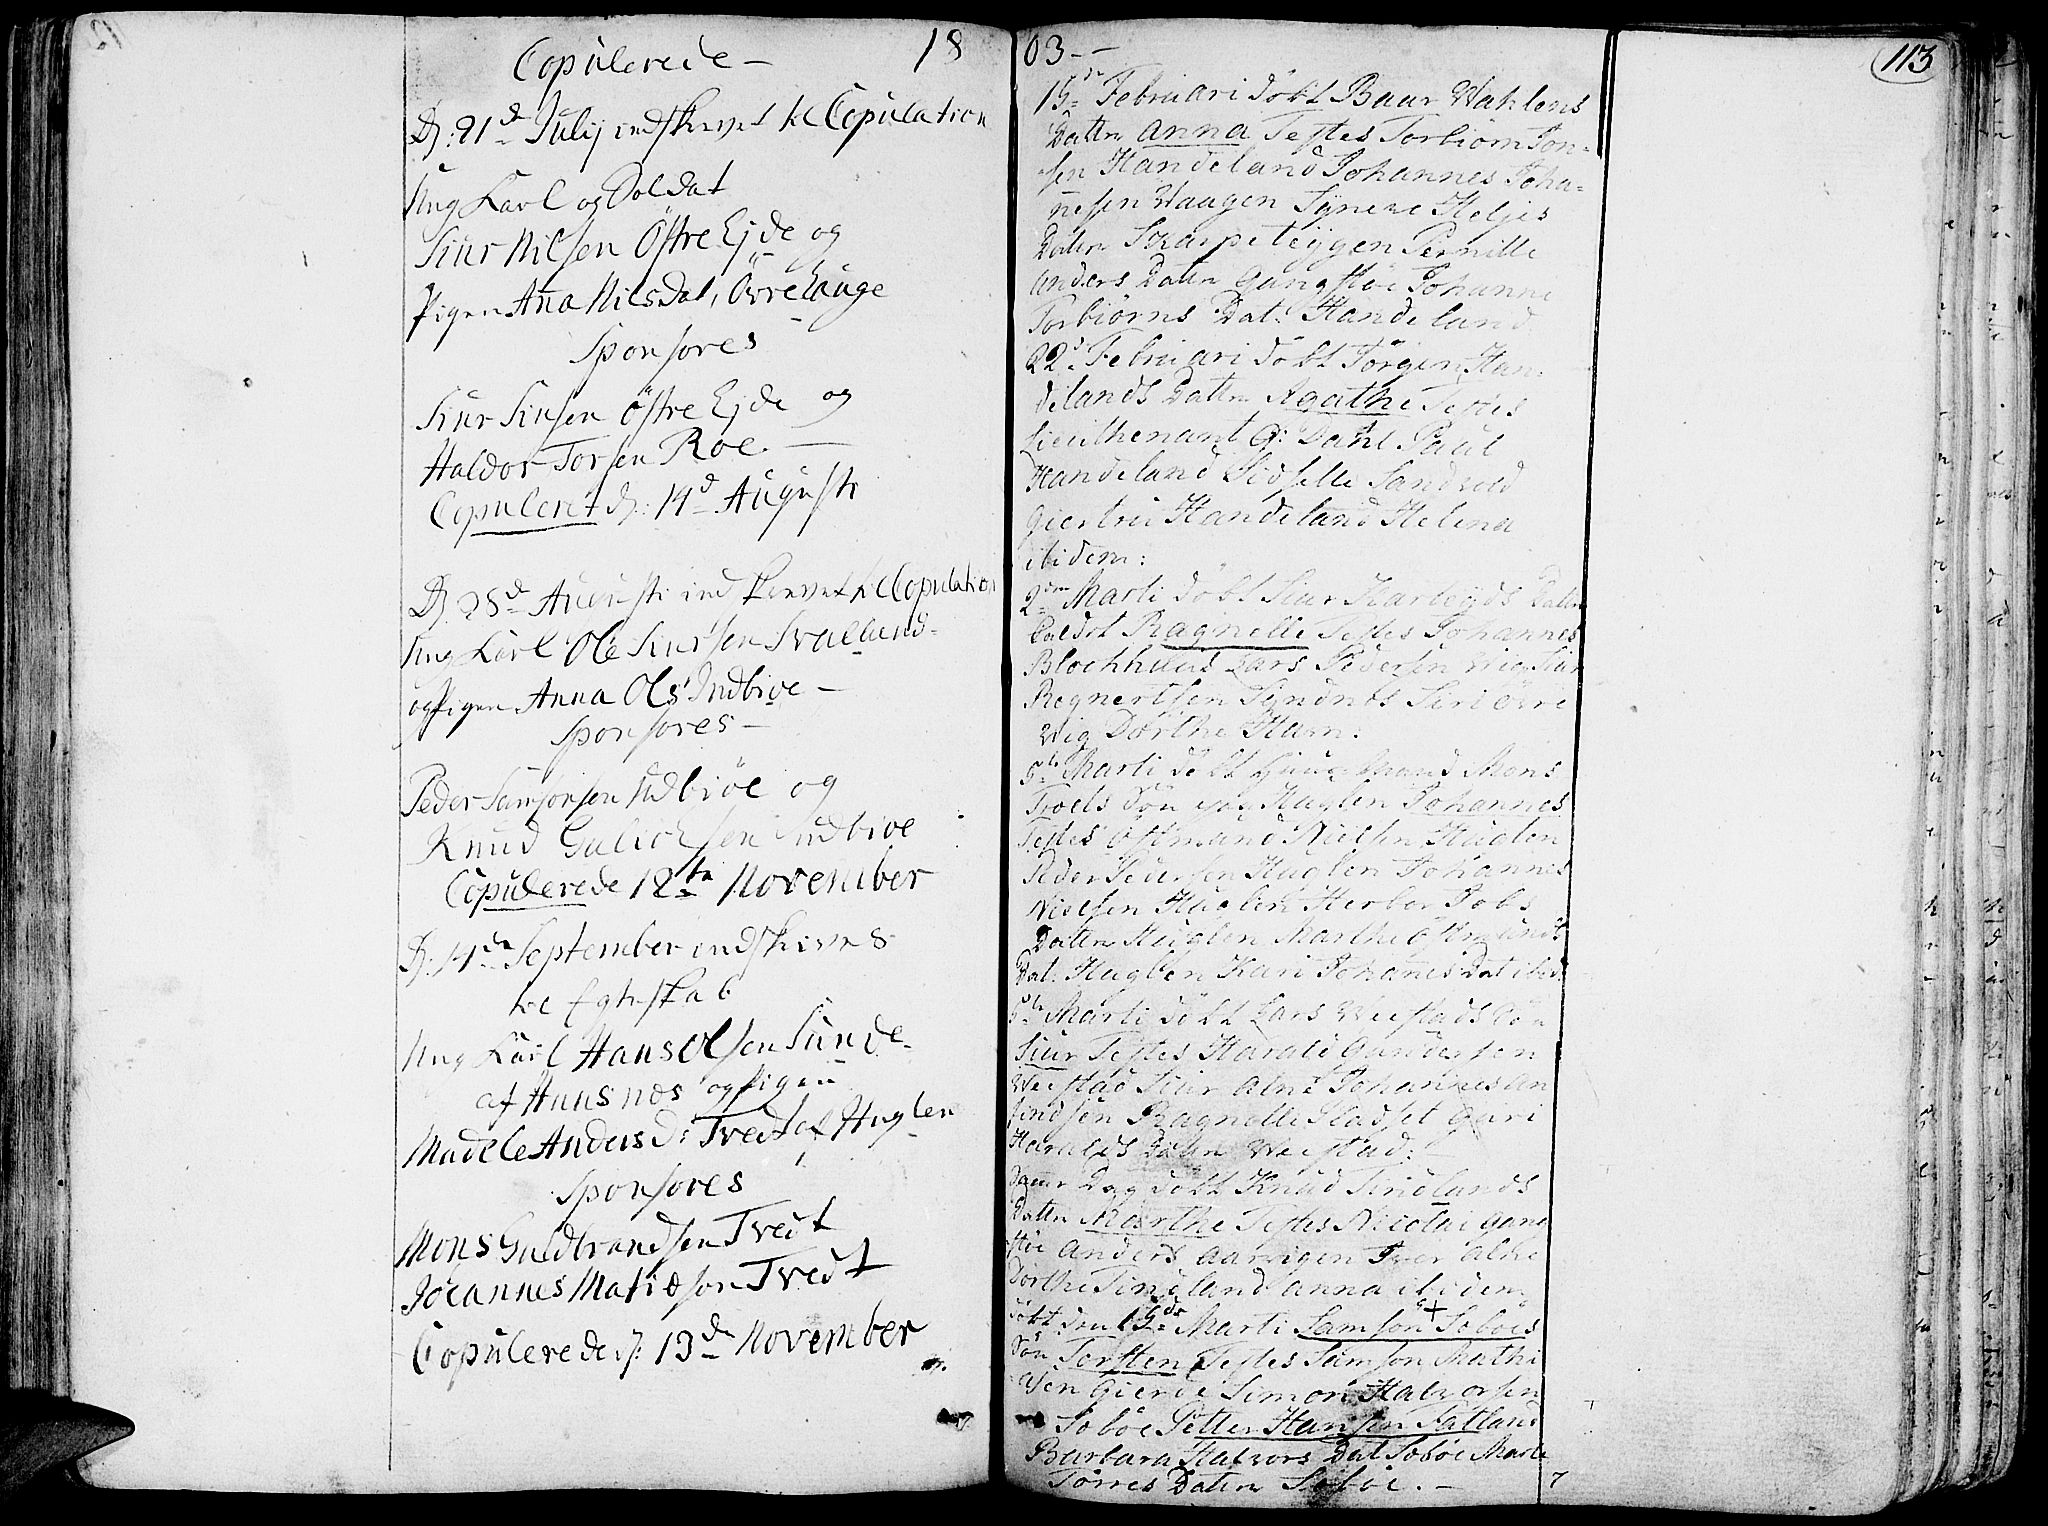 Copulerede — 18
D: 21d Julij indskrevet til Copulation
Ung Karl og Soldat
Siur Nilsen Östre Ejde og
Pigen Aña Nilsdat, Övre Hauge
Sponsores
Siur Siursen Östre Ejde og
Haldor Torsen Roe. —
Copuleret d: 14d Augusti
D. 28d Augusti indskrevet til Copulation
Ung Karl Ole Siursen Svallund-
og Pigen Anna Ols Indbioe —
Sponsores —
Peder Samsonsen Udbiöe og
Knud Indbioe
Copulerede 12te November
D: 14de September indskrives
til Egteskab
Ung Karl Hans Olsen Sunde
af Huusnæs og Pigen
Madele Anders D: Tvedt af Huglen
Sponsores
Mons Guldbrandsen Tvedt
Johannes Matiesön Tvedt
Copulerede d: 13de November
03 — 113
15de Februari döbt Baar Wahlens
Datter Anna Testes Torbiörn Jon-
sen Handeland Johannes Joha-
nesen Waagen Syneve Heljes
Datter Skarpeteygen Pernille
Anders Datter Gangstöe Johanne
Torbiörns Dat: Handeland
22d Februari döbt Jörgen Han-
delands Datter Agathe Testes
Lieuthenant G: Dahl Paul
Handeland Sidselle Sandvold
Giertru Handeland Helena
ibidem:
2den Marti döbt Siur Datter
kaldet Ragnelle Testes Johannes
Blochhuus Lars Pedersen Wig Siur
Regnertsen Siri övre
Wig Dorthe Ham:
Marti döbt Huusmand Mons
Troels Sön paa Huglen Johannes
Testes Östmund Nielsen Huglen
Peder Pedersen Huglen Johannes
Nielsen Huglen Herbor Jobs
Datter Huglen Marthe Östmunds
Dat. Huglen Kari Johanes Dat ibid:
Marti döbt Lars Weestads Sön
Siur Testes Harald Gundersen
Weestad Siur Johannes An
findsen Ragnelle Guri
Haralds Datter Weestad:
Samme Dag döbt Knud Tindlands
Datter Marthe Testes Nicolai Gang
stöe Anders Aarvigen Iver
Dorthe Tindland Anna ibidem
döbt den Marti Samson Soböes
Sön Torsten Testes Samson Mathi
Gierde Simon Halvorsen
Soböe Petter Hansen Fatland
Barbara Halvors Dat Soböe Marte
Törres Datter Soböe. —